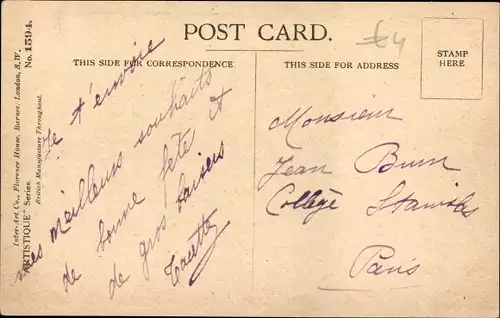 POST CARD.
£4
THIS SIDE FOR CORRESPONDENCE.
THIS SIDE FOR ADDRESS
STAMP
HERE
Inter-Art Co., Florence House, Barnes, London, S.W.
"ARTISTIQUE" Series. No. 1594.
British Manufacture Throughout.
Je t'envoie
mes meilleurs souhaits
de bonne fête et
de gros baisers
Monsieur
Jean
Collège
Paris